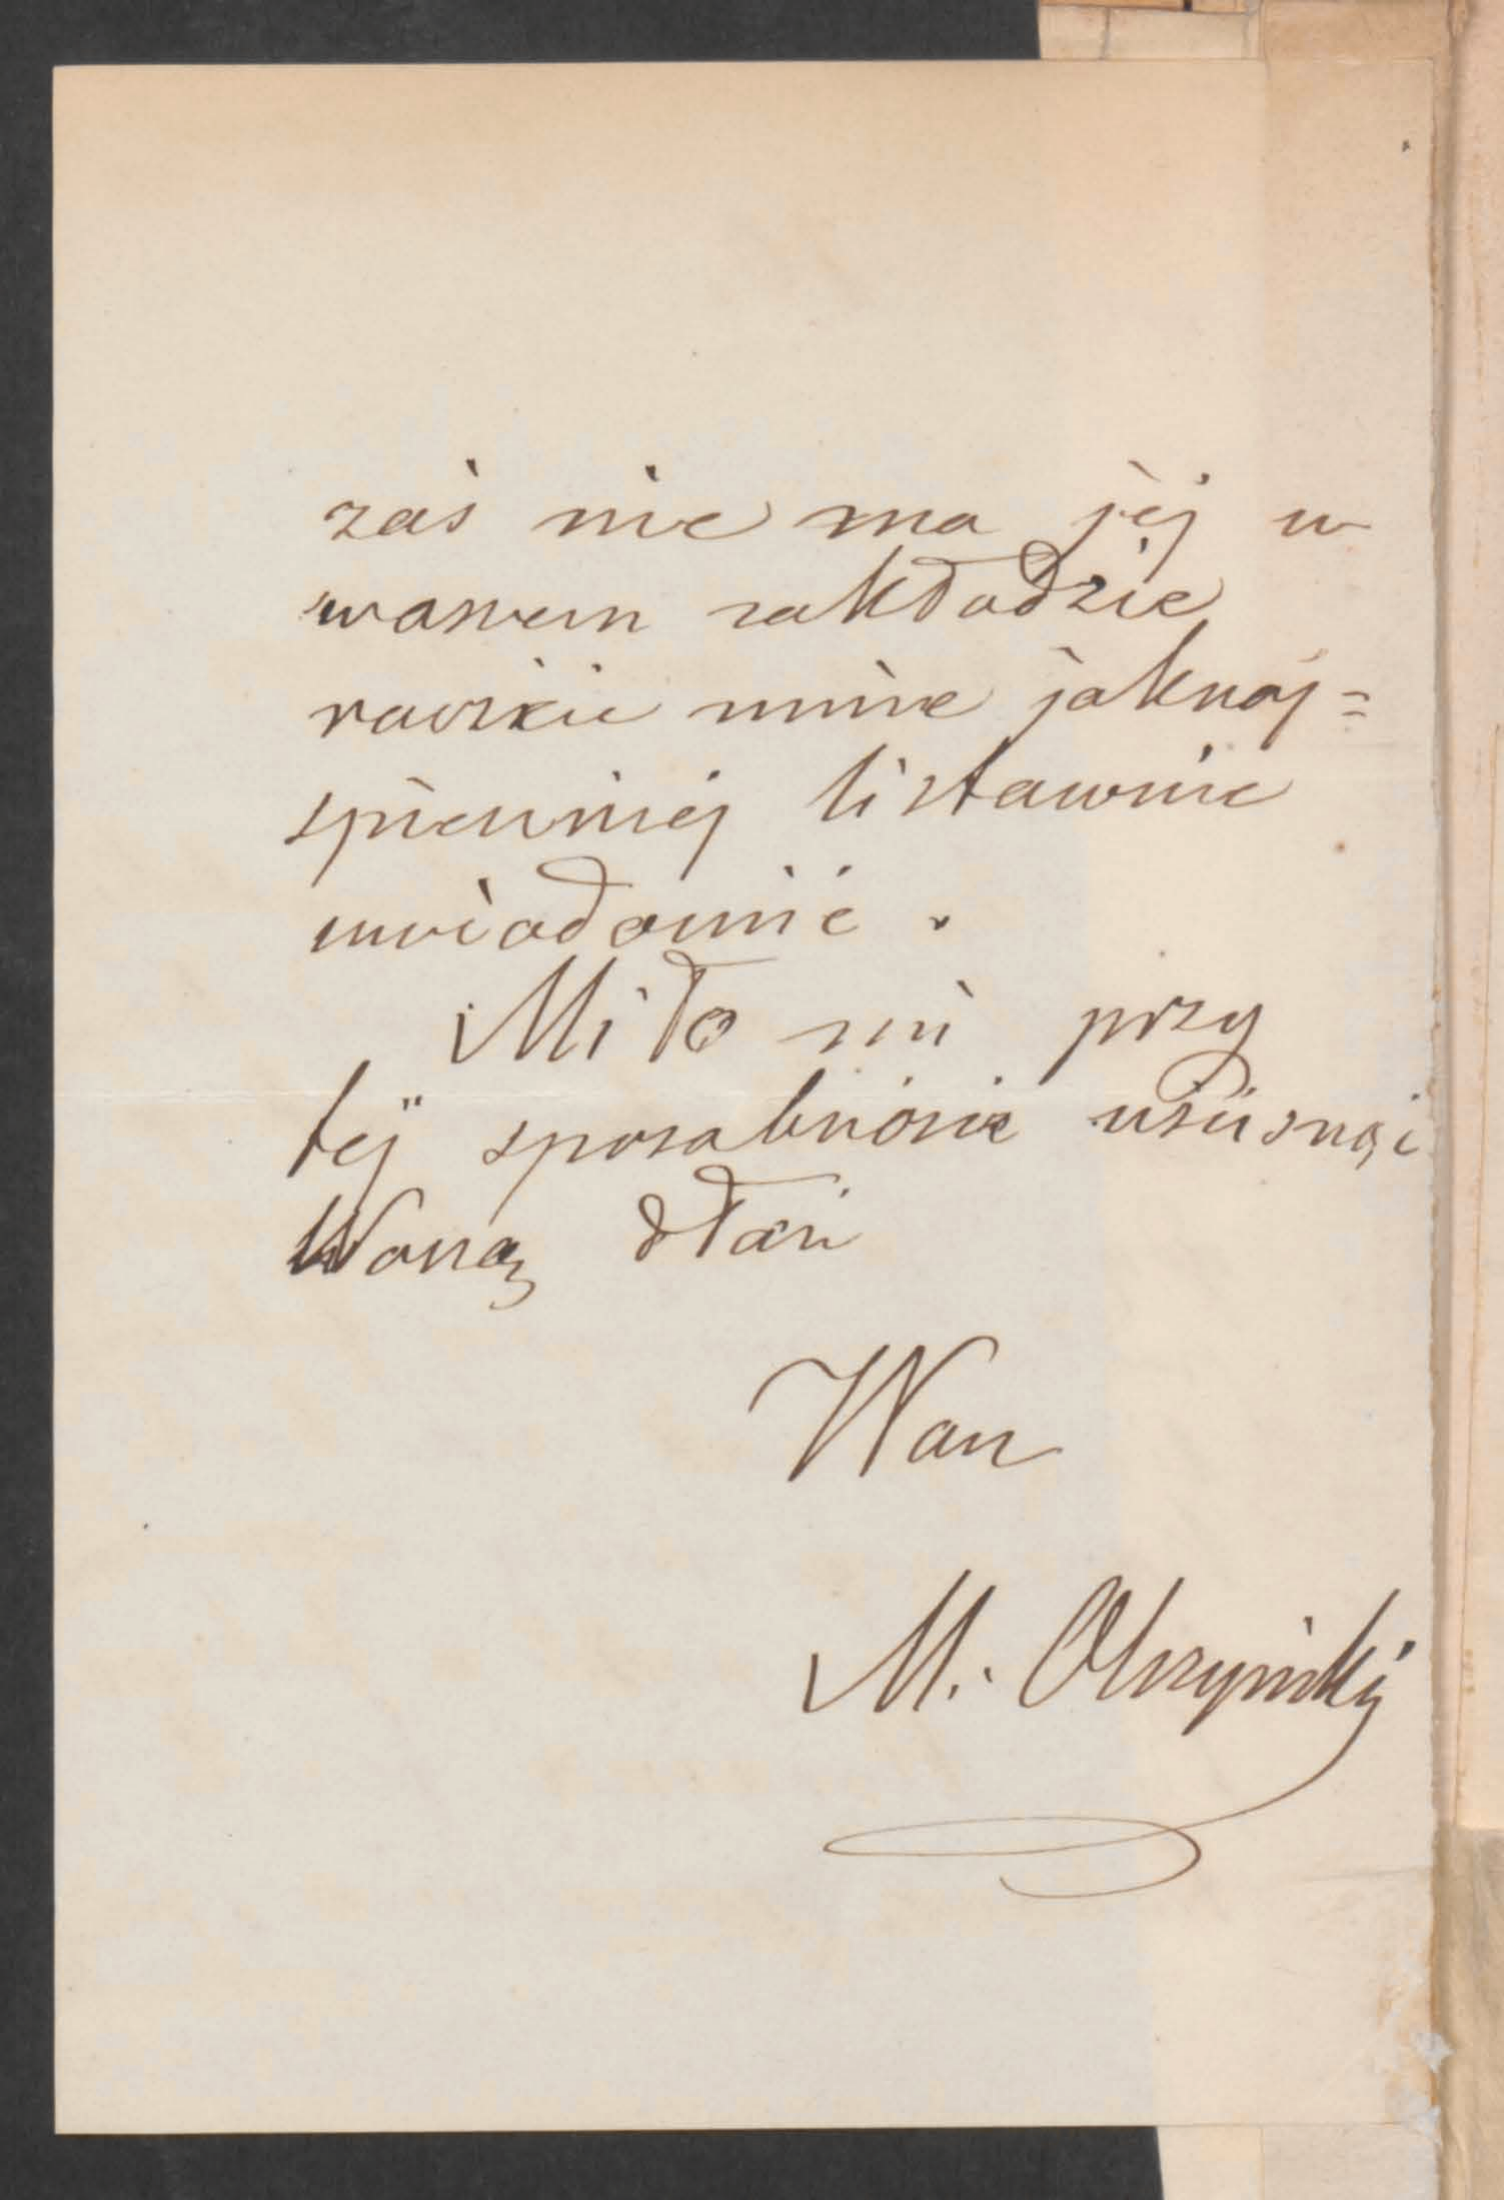 zaś nie ma jej w
waszem zakładzie
raczcie mnie jaknaj=
spieszniej listownie
uwiadomić.
Miło mi przy
tej sposobności uścisnąć
Waszą dłoń
Wasz
M. Olszyński